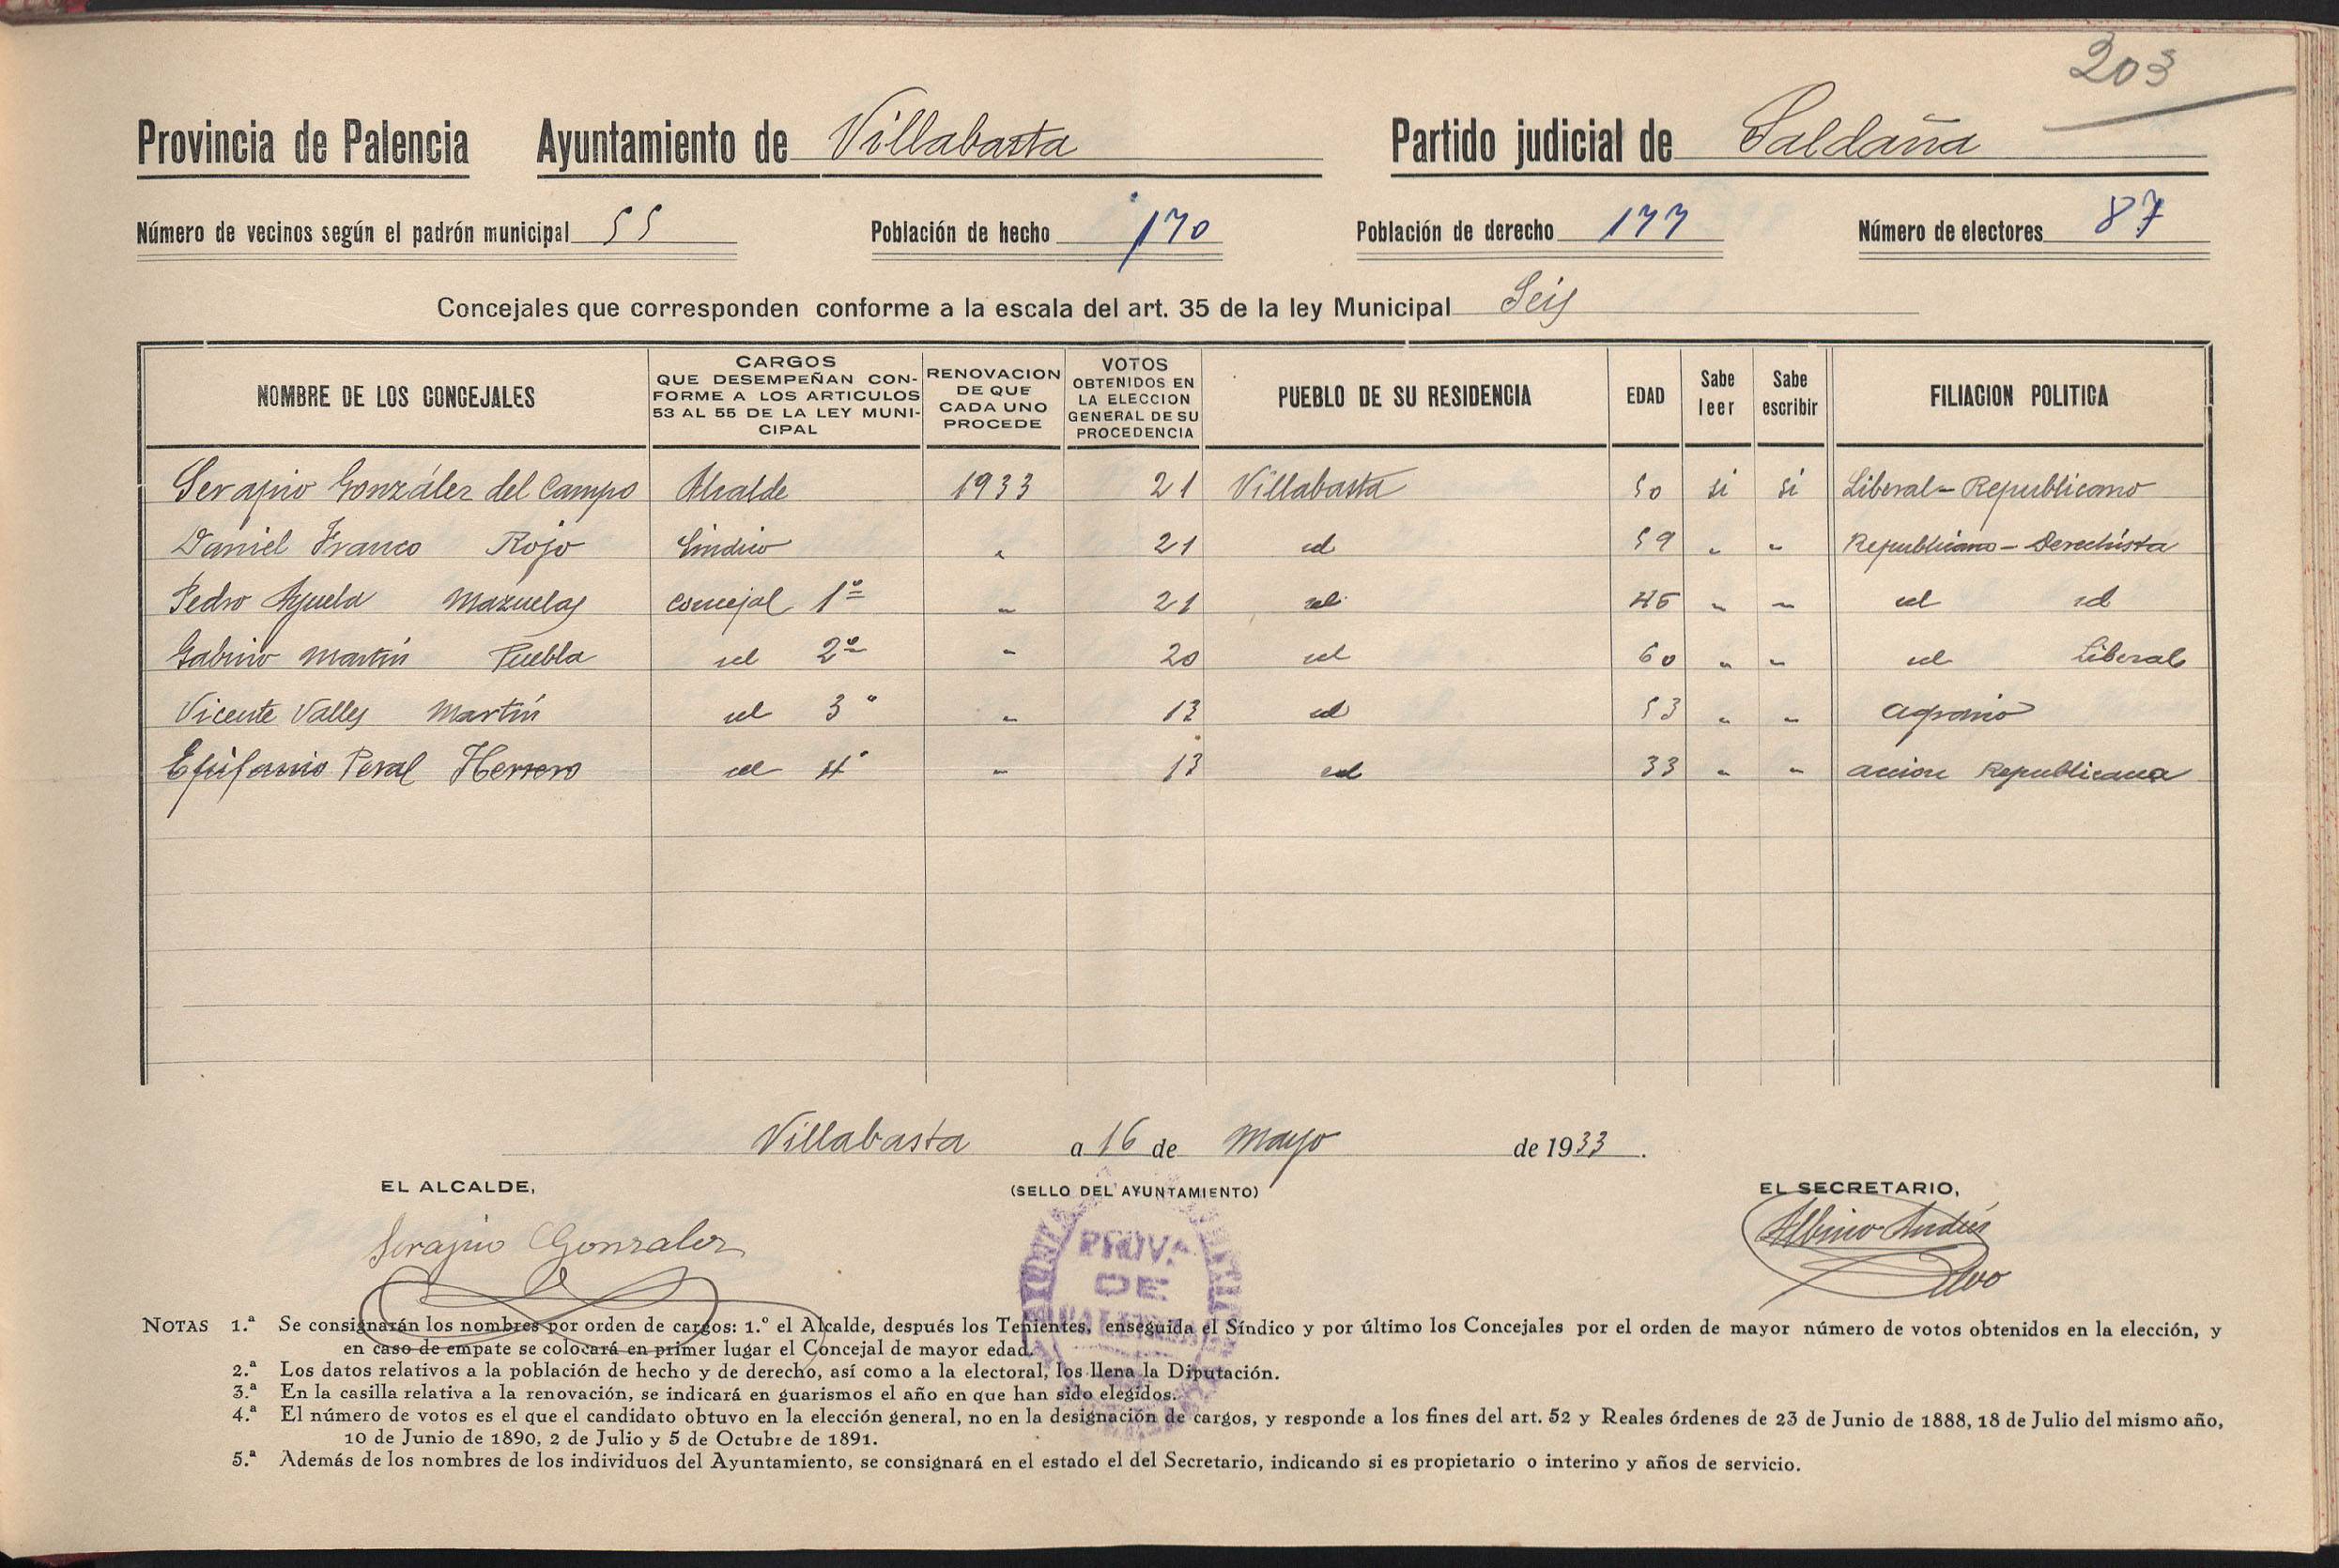 203
Provincia de Palencia Ayuntamiento de Villabasta Partido judicial de Saldaña
Número de vecinos según el padrón municipal 55 Población de hecho 170 Población de derecho 177 Número de electores 87
Concejales que corresponden conforme a la escala del art. 35 de la ley Municipal Seis
NOMBRE DE LOS CONCEJALES CARGOS QUE DESEMPEÑAN CONFORME A LOS ARTICULOS 53 AL 55 DE LA LEY MUNICIPAL RENOVACION DE QUE CADA UNO PROCEDE VOTOS OBTENIDOS EN LA ELECCION GENERAL DE SU PROCEDENCIA PUEBLO DE SU RESIDENCIA EDAD Sabe leer Sabe escribir FILIACION POLITICA
Serapio González del Campo Alcalde 1933 21 Villabasta 50 si si Liberal-Republicano
Daniel Franco Rojo Sindico " 21 id 59 " " Republicano-Derechista
Pedro Ayuela Mazuelas concejal 1º " 21 id 45 " " id id
Gabino Martín Puebla id 2º " 20 id 60 " " id Liberal
Vicente Valles Martín id 3º " 13 id 53 " " agrario
Epifanio Peral Herrero id 4º " 13 id 33 " " accion Republicana
Villabasta a 16 de Mayo de 1933.
EL ALCALDE, (SELLO DEL AYUNTAMIENTO) EL SECRETARIO,
Serapio Gonzalez
Albino Andrés
PROVA
DE
NOTAS 1.ª Se consignarán los nombres por orden de cargos: 1.º el Alcalde, después los Tenientes, enseguida el Síndico y por último los Concejales por el orden de mayor número de votos obtenidos en la elección, y
en caso de empate se colocará en primer lugar el Concejal de mayor edad.
2.ª Los datos relativos a la población de hecho y de derecho, así como a la electoral, los llena la Diputación.
3.ª En la casilla relativa a la renovación, se indicará en guarismos el año en que han sido elegidos.
4.ª El número de votos es el que el candidato obtuvo en la elección general, no en la designación de cargos, y responde a los fines del art. 52 y Reales órdenes de 23 de Junio de 1888, 18 de Julio del mismo año,
10 de Junio de 1890, 2 de Julio y 5 de Octubre de 1891.
5.ª Además de los nombres de los individuos del Ayuntamiento, se consignará en el estado el del Secretario, indicando si es propietario o interino y años de servicio.